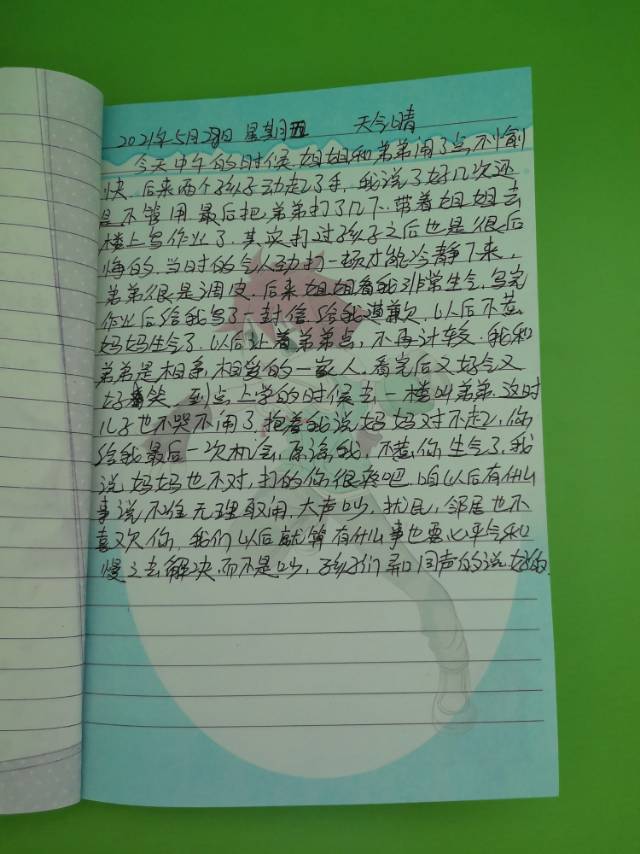 2021年5月28日 星期五 天今晴
今天中午的时候姐姐和弟弟闹了点不愉
快.后来两个孩子动起了手,我说了好几次还
是不管用.最后把弟弟打了几下.带着姐姐去
楼上写作业了.其实打过孩子之后也是很后
悔的.当时的气人劲打一顿才能冷静下来,
弟弟很是调皮.后来姐姐看我非常生气.写完
作业后给我写了一封信.给我道歉.以后不惹
妈妈生气了.以后让着弟弟点,不再计较.我和
弟弟是相亲相爱的一家人.看完后又好气又
好笑.到点上学的时候去一楼叫弟弟.这时
儿子也不哭不闹了.抱着我说妈妈对不起,你
给我最后一次机会,原谅我,不惹你生气了,我
说妈妈也不对,打的你很疼吧.咱以后有什么
事说不准无理取闹,大声吵,扰民,邻居也不
喜欢你.我们以后就算有什么事也要心平气和
慢之去解决.而不是吵,孩子们异口同声的说好的.